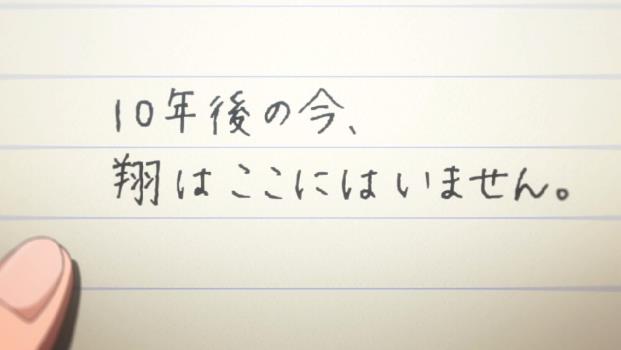 10年後の今、
翔はここにはいません。